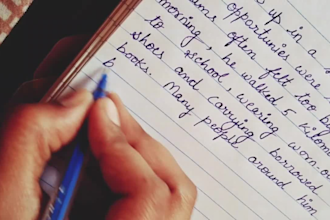 up in a
opportunities were
often felt too b
morning, he walked 5 kilom
to school, wearing worn-ou
shoes and carrying borrowed
books. Many people around him
b